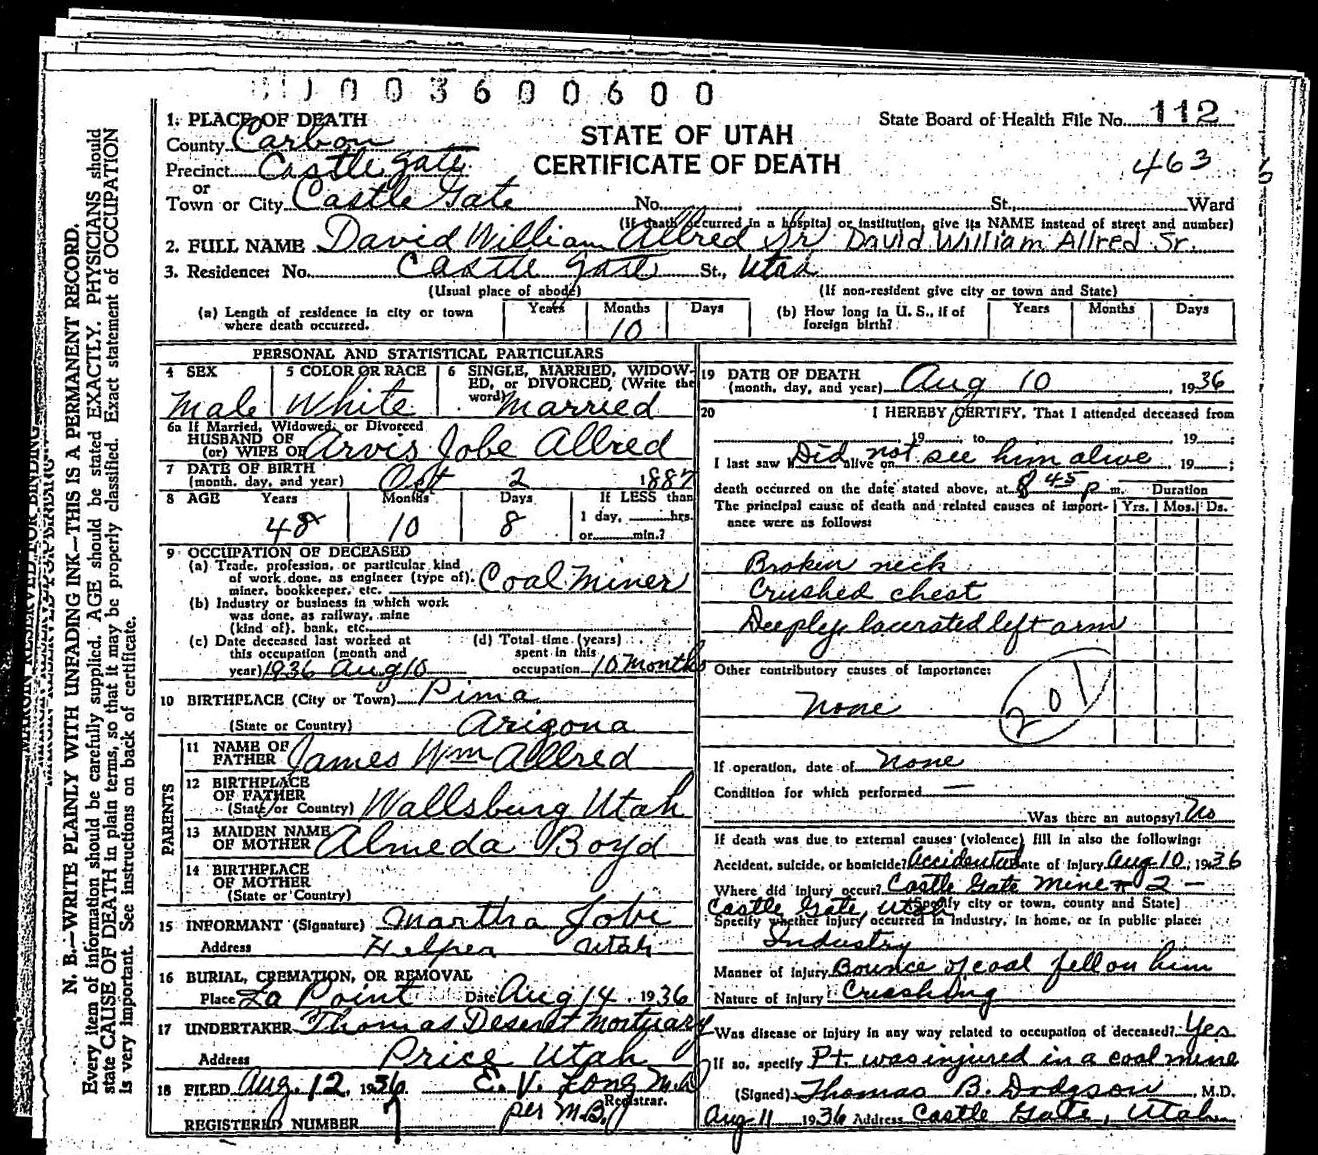 003600600
State Board of Health File No. 112
STATE OF UTAH
CERTIFICATE OF DEATH
463
1. PLACE OF DEATH
County Carbon
Precinct Castle Gate
or
Town or City Castle Gate No. St., Ward
(If death occurred in a hospital or institution, give its NAME instead of street and number)
2. FULL NAME David William Allred Sr David William Allred Sr.
3. Residence: No. Castle Gate St., Utah
(Usual place of abode) (If non-resident give city or town and State)
(a) Length of residence in city or town where death occurred. Years Months 10 Days
(b) How long in U. S., if of foreign birth? Years Months Days
PERSONAL AND STATISTICAL PARTICULARS
4 SEX Male
5 COLOR OR RACE White
6 SINGLE, MARRIED, WIDOWED, or DIVORCED, (Write the word) Married
6a If Married, Widowed, or Divorced
HUSBAND OF
(or) WIFE OF Arvis Jobe Allred
7 DATE OF BIRTH
(month, day, and year) Oct 2 1887
8 AGE Years 48 Months 10 Days 8
If LESS than
1 day, hrs.
or min.?
9 OCCUPATION OF DECEASED
(a) Trade, profession, or particular kind
of work done, as engineer (type of),
miner, bookkeeper, etc. Coal Miner
(b) Industry or business in which work
was done, as railway, mine
(kind of), bank, etc.
(c) Date deceased last worked at
this occupation (month and
year) 1936 Aug 10
(d) Total time (years)
spent in this
occupation 10 Months
10 BIRTHPLACE (City or Town) Pima
(State or Country) Arizona
PARENTS
11 NAME OF
FATHER James Wm Allred
12 BIRTHPLACE
OF FATHER
(State or Country) Wallsburg Utah
13 MAIDEN NAME
OF MOTHER Almeda Boyd
14 BIRTHPLACE
OF MOTHER
(State or Country)
15 INFORMANT (Signature) Martha Jobe
Address Helper Utah
16 BURIAL, CREMATION, OR REMOVAL
Place La Point Date Aug 14, 1936
17 UNDERTAKER Thomas Deseret Mortuary
Address Price Utah
18 FILED Aug. 12, 1936 E. V. Long M.D.
Registrar.
per M.B.
REGISTERED NUMBER 7
19 DATE OF DEATH
(month, day, and year) Aug 10, 1936
20 I HEREBY CERTIFY, That I attended deceased from
19 to 19
I last saw h alive on Did not see him alive, 19 ;
death occurred on the date stated above, at 8 45 p m. Duration
The principal cause of death and related causes of importance were as follows: Yrs. Mos. Ds.
Broken neck
Crushed chest
Deeply lacerated left arm
Other contributory causes of importance:
None
201
If operation, date of None
Condition for which performed —
Was there an autopsy? No
If death was due to external causes (violence) fill in also the following:
Accident, suicide, or homicide? Accidental Date of injury Aug 10, 1936
Where did injury occur? Castle Gate Mine # 2 –
Castle Gate, Utah (Specify city or town, county and State)
Specify whether injury occurred in industry, in home, or in public place:
Industry
Manner of injury Bounce of coal fell on him
Nature of injury Crushing
Was disease or injury in any way related to occupation of deceased? Yes
If so, specify Pt. was injured in a coal mine
(Signed) Thomas B. Dodgson, M.D.
Aug 11 1936 Address Castle Gate, Utah
MARGIN RESERVED FOR BINDING
N. B.—WRITE PLAINLY WITH UNFADING INK—THIS IS A PERMANENT RECORD.
Every item of information should be carefully supplied. AGE should be stated EXACTLY. PHYSICIANS should
state CAUSE OF DEATH in plain terms, so that it may be properly classified. Exact statement of OCCUPATION
is very important. See instructions on back of certificate.